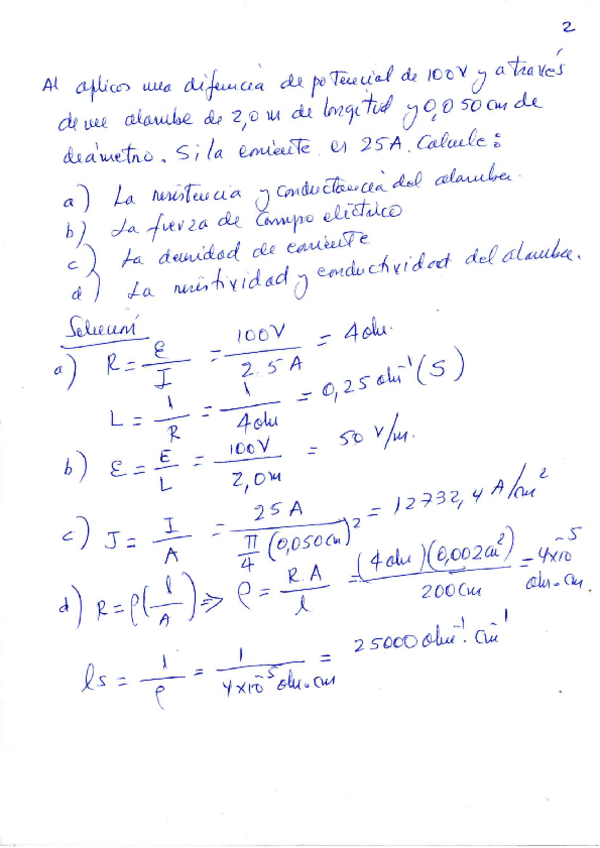 2
Al aplicar una diferencia de potencial de 100V y a través
de un alambre de 2,0 m de longitud y 0,050 cm de
diámetro. Si la corriente es 25A. Calcule:
a) La resistencia y conductancia del alambre.
b) La fuerza de campo eléctrico
c) La densidad de corriente
d) La resistividad y conductividad del alambre.
Solución
a) R = ε/I = 100V/2.5A = 4 ohm.
L = 1/R = 1/4ohm = 0,25 ohm⁻¹ (S)
b) ε = E/L = 100V/2,0m = 50 V/m.
c) J = I/A = 25A/(π/4 (0,050cm)²) = 12732,4 A/cm²
d) R = ρ(l/A) => ρ = R.A/l = (4 ohm)(0,002cm²)/200cm = 4x10⁻⁵ ohm.cm
ls = 1/ρ = 1/4x10⁻⁵ ohm.cm = 25000 ohm⁻¹.cm⁻¹